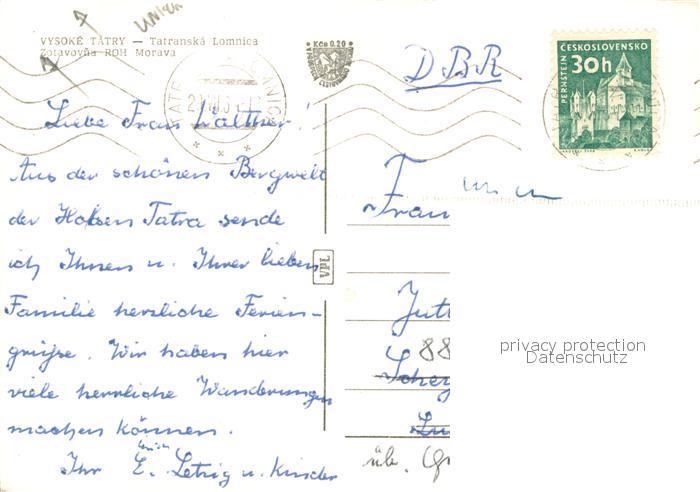 VYSOKÉ TATRY — Tatranská Lomnica
Zotavovňa ROH Morava
Kčs 0.20
DBR
ČESKOSLOVENSKO
30h
PERNŠTEJN
Liebe Frau Walther!
Aus der schönen Bergwelt
der Hohen Tatra sende
ich Ihnen u. Ihrer lieben
Familie herzliche Ferien-
grüße. Wir haben hier
viele herrliche Wanderungen
machen können.
Ihr E. u. Kinder
VPL
Frau
Jutt
88
üb.
privacy protection
Datenschutz